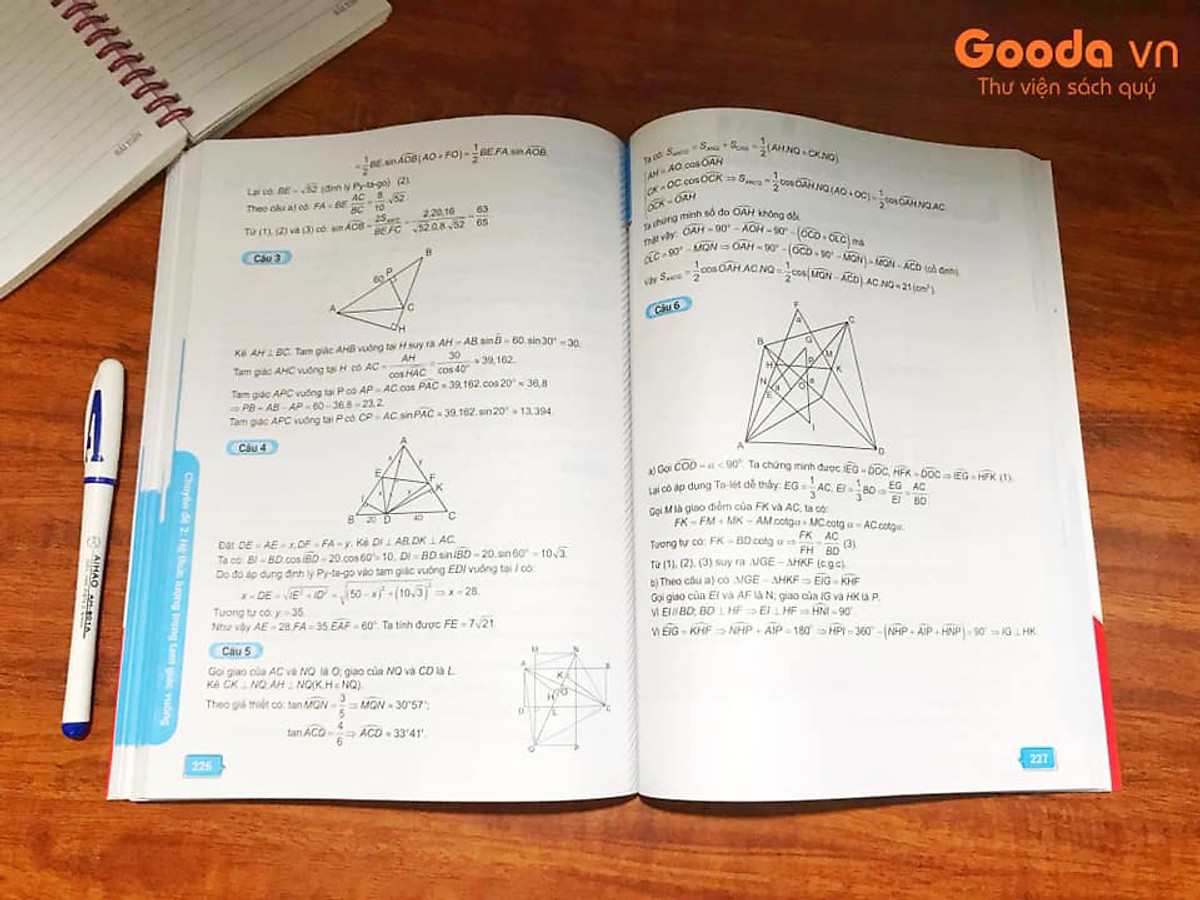 Gooda vn
Thư viện sách quý
= 1/2 BE.sin AOB(AO + FO) = 1/2 BE.FA.sin AOB.
Lại có: BE = √52 (định lý Py-ta-go) (2).
Theo câu a) có: FA = BE. AC/BC = 8/10 √52.
Từ (1), (2) và (3) có: sin AOB = 2S/BE.FC = 2.20,16/√52.0,8.√52 = 63/65
Câu 3
B
P
60
A
C
H
Kẻ AH ⊥ BC. Tam giác AHB vuông tại H suy ra AH = AB.sin B̂ = 60.sin30° = 30.
Tam giác AHC vuông tại H có AC = AH/cosHAC = 30/cos40° ≈ 39,162.
Tam giác APC vuông tại P có AP = AC.cos PAC ≈ 39,162.cos20° ≈ 36,8
⇒ PB = AB − AP = 60 − 36,8 = 23,2.
Tam giác APC vuông tại P có CP = AC.sinPAC ≈ 39,162.sin20° ≈ 13,394.
Câu 4
A
E
F
K
B 20 D 40 C
Đặt DE = AE = x, DF = FA = y. Kẻ DI ⊥ AB, DK ⊥ AC.
Ta có: BI = BD.cos IBD = 20.cos60° = 10, DI = BD.sin IBD = 20.sin60° = 10√3.
Do đó áp dụng định lý Py-ta-go vào tam giác vuông EDI vuông tại I có:
x = DE = √(IE² + ID²) = √((50 − x)² + (10√3)²) ⇒ x = 28.
Tương tự có: y = 35.
Như vậy AE = 28, FA = 35, EAF = 60°. Ta tính được FE = 7√21.
Câu 5
Gọi giao của AC và NQ là O; giao của NQ và CD là L.
Kẻ CK ⊥ NQ; AH ⊥ NQ(K,H ∈ NQ).
Theo giả thiết có: tan MQN = 3/5 ⇒ MQN ≈ 30°57';
tan ACD = 4/6 ⇒ ACD ≈ 33°41'.
M N
A B
K
O
H
D L C
Q P
226
Chuyên đề 2: Hệ thức lượng trong tam giác vuông
Ta có: S = S + S = 1/2 (AH.NQ + CK.NQ)
AH = AO.cos OAH
CK = OC.cos OCK ⇒ S = 1/2 cos OAH.NQ(AO + OC) = 1/2 cos OAH.NQ.AC.
OCK = OAH
Ta chứng minh số đo OAH không đổi.
Thật vậy: OAH = 90° − AOH = 90° − (OCD + OLC) mà
OLC = 90° − MQN ⇒ OAH = 90° − (OCD + 90° − MQN) = MQN − ACD (cố định).
vậy S = 1/2 cos OAH.AC.NQ = 1/2 cos(MQN − ACD).AC.NQ ≈ 21(cm²).
Câu 6
F
C
B
G
M
H
K
N
E
O
I
A
D
a) Gọi COD = α < 90°. Ta chứng minh được IEG = DOC, HFK = DOC ⇒ IEG = HFK (1).
Lại có áp dụng Ta-lét dễ thấy: EG = 1/3 AC, EI = 1/3 BD ⇒ EG/EI = AC/BD
Gọi M là giao điểm của FK và AC, ta có:
FK = FM + MK = AM.cotgα + MC.cotg α = AC.cotgα.
Tương tự có: FK = BD.cotg α ⇒ FK/FH = AC/BD (3).
Từ (1), (2), (3) suy ra ΔIGE ~ ΔHKF (c.g.c).
b) Theo câu a) có ΔIGE ~ ΔHKF ⇒ EIG = KHF
Gọi giao của EI và AF là N; giao của IG và HK là P.
Vì EI//BD; BD ⊥ HF ⇒ EI ⊥ HF ⇒ HNI = 90°.
Vì EIG = KHF ⇒ NHP + AIP = 180° ⇒ HPI = 360° − (NHP + AIP + HNP) = 90° ⇒ IG ⊥ HK.
227
AIHAO